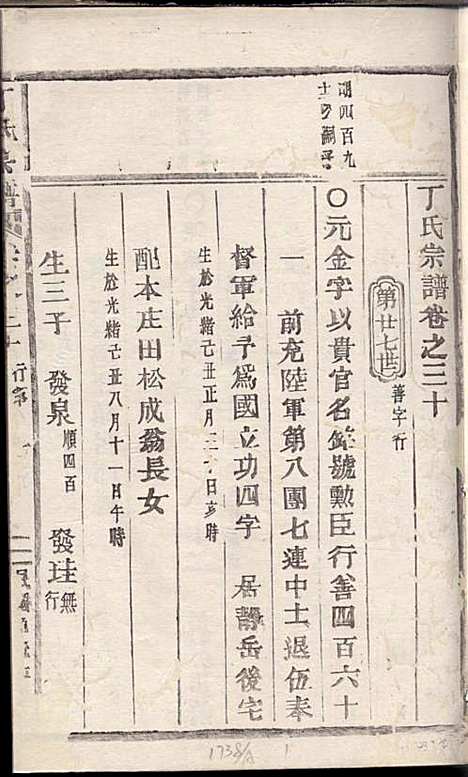 丁氏宗譜卷之三十
第廿七世
善字行
胡四百九
〇元金字以貴官名銓號勲臣行善四百六十
一 前充陸軍第八團七連中士退伍奉
督軍給予爲國立功四字 居靜岳後宅
生於光緒己丑正月三十日亥時
配本庄田松成翁長女
生於光緒己丑八月十一日午時
生三子 發泉順四百 發珪無行
1738/A 1